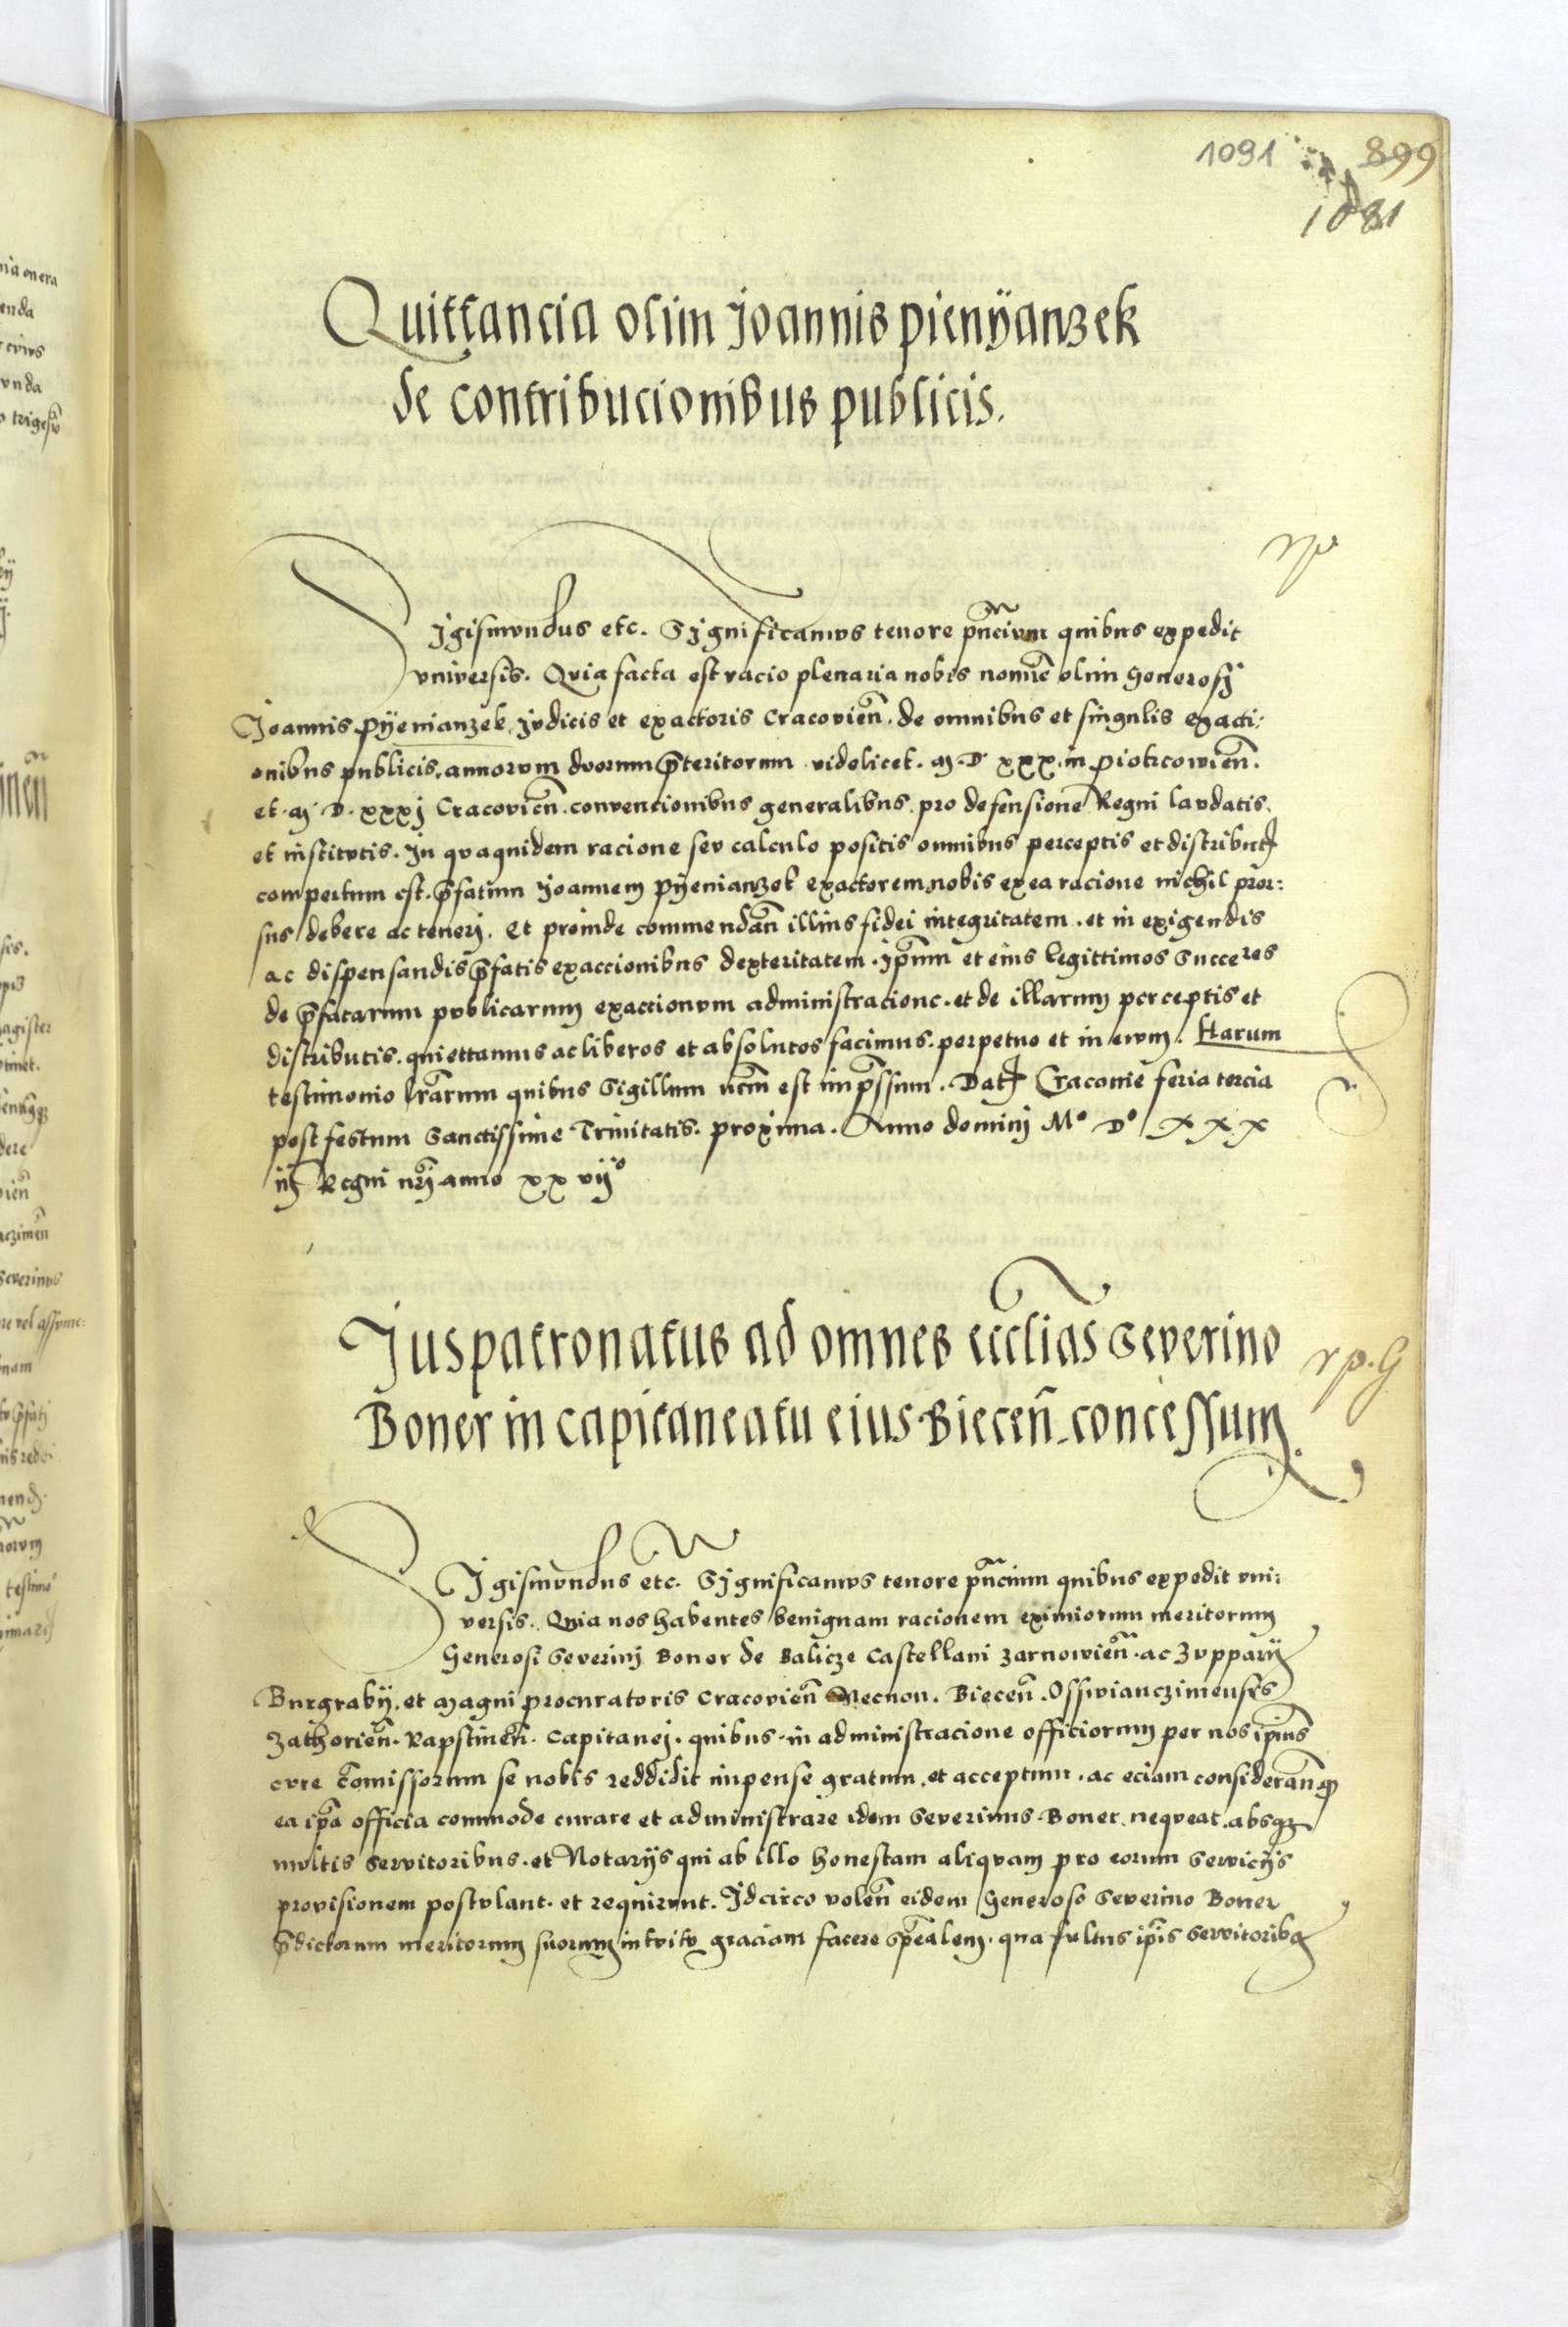 1091 899
1081
Quittancia olim Joannis pienÿanzek
de contribucionibus publicis.
rp
Sigismundus etc. Significamus tenore pñcium quibus expedit
vniversis. Quia facta est racio plenaria nobis nomĩe olim Generosi
Joannis Pyenianzek Judicis et exactoris Cracovień. de omnibus et singulis exacti:
onibus publicis, annorum duorum p̃teritorum videlicet. M. D xxx. in Piotrcowień.
et. M. D. xxxj Cracovień. convencionibus generalibus. pro defensione Regni laudatis.
et institutis. In quaquidem racione seu calculo positis omnibus perceptis et distribut
compertum est. p̃fatum Joannem Pyenianzek exactorem nobis ex ea racione nichil pror:
sus debere ac teneri. Et proinde commendañ illius fidei integritatem. et in exigendis
ac dispensandis p̃fatis exaccionibus dexteritatem. Ip̃um et eius legittimos Succeres
de p̃fatarum publicarum exactionum administracione. et de illarum perceptis et
distributis. quiettamus ac liberos et absolutos facimus. perpetuo et in evum. Harum
testimonio l̃rarum quibus Sigillum nr̃m est imp̃ssum. Dat Cracovie feria tercia
post festum Sanctissime Trinitatis. proxima. Anno domini Mº Dº xxx
iij Regni nr̃j anno xxvijº
Jus patronatus ad omnes eccl̃ias Severino
Boner in capitaneatu eius Bieceñ. concessum.
rp. G
Sigismundus etc. Significamus tenore pñcium quibus expedit vni:
versis. Quia nos habentes benignam racionem eximiorum meritorum
Generosi Severini Boner de Balicze Castellani Zarnowień. ac Zupparij
Burgrabij. et Magni procuratoris Cracovień Necnon. Bieceñ. Osswianczimensis
Zathorień. Rapstineñ. Capitanej. quibus. in administracione officiorum per nos ip̃ius
cure com̃issorum se nobis reddidit impense gratum, et acceptum. ac eciam considerañ q
ea ip̃a officia commode curare et administrare idem Severinus. Boner. nequeat. absq
multis Servitoribus. et Notariis qui ab illo honestam aliquam pro eorum Serviciis
provisionem postulant. et requirunt. Idcirco voleñ eidem Generoso Severino Boner
p̃dictorum meritorum suorum intuitu graciam facere sp̃ealem. qua fultus ip̃is Servitoribq